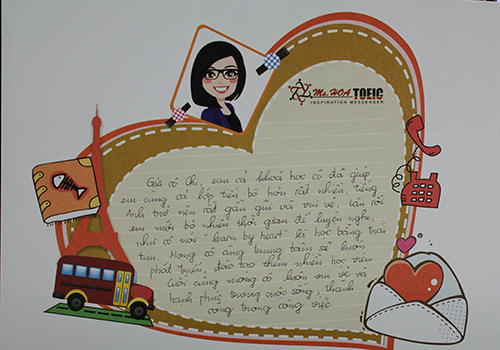 Ms. HOA TOEIC
INSPIRATION MESSENGER
Gửi cô Chi, sau cả khoá học cô đã giúp
em cùng cả lớp tiến bộ hơn rất nhiều, tiếng
Anh trở nên rất gần gũi và vui vẻ. Lần rồi
em mới bỏ nhiều thời gian để luyện nghe,
như cô nói "learn by heart" là học bằng trái
tim. Mong cô cùng trung tâm sẽ luôn
phát triển, đào tạo thêm nhiều học viên
cuối cùng mong cô luôn vui vẻ và
hạnh phúc trong cuộc sống, thành
công trong công việc.